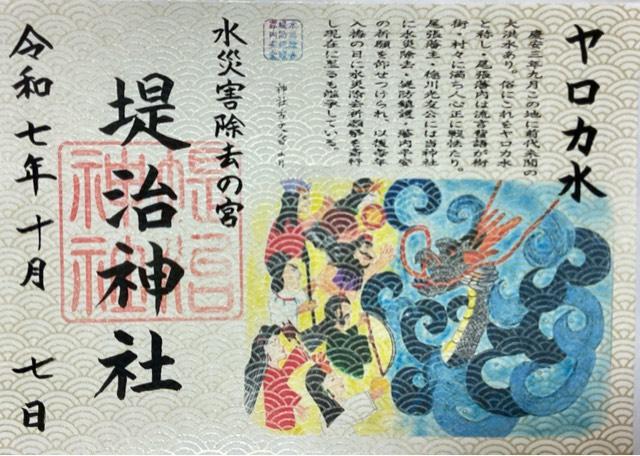 ヤロカ水
慶安三年九月この地に前代未聞の
大洪水あり。俗にこれをヤロカ水
と称し、尾張藩内は流言蜚語が街
街・村々に満ち人心正に戦怯たり。
尾張藩主・徳川光友公には当神社
に水災除去・堤防鎮護・藩内平安
の祈願を仰せつけられ、以後毎年
入梅の日に水災除去祈願祭を斎行
し現在に至るも継承している。
水災害除去の宮
堤治神社
令和七年十月 七日